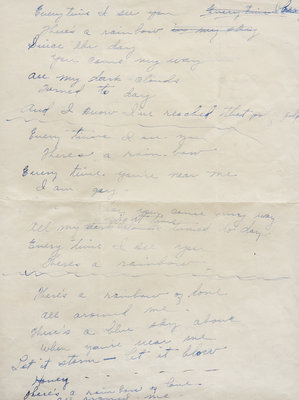 Every time I see you Every time I hea
There's a rainbow in my sky
Since the day
You came my way
All my dark clouds
turned to day
And I know I've reached that
Every time I see you
There's a rainbow
Every time you're near me
I am gay
you came my way
All my dark clouds turned to day
Every time I see you
There's a rainbow
There's a rainbow of love
all around me
There's a blue sky above
When you're near me
Let it storm — let it blow
Honey - - - - -
There's a rainbow of love
all around me